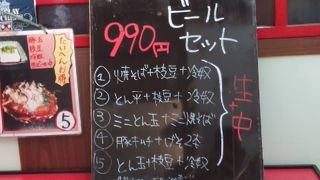 ビール
990円 セット
① 焼そば+枝豆+冷奴
② とん平+枝豆+冷奴
③ ミニとん玉+ミニ焼そば
④ 豚キムチ+
⑤ とん玉+枝豆+冷奴
生中
たいへんお得
豚玉
枝豆
冷奴
5